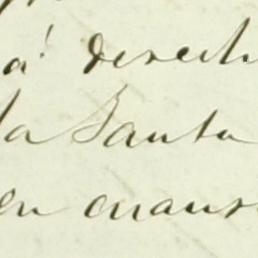 á derech
la Santa
en cuans